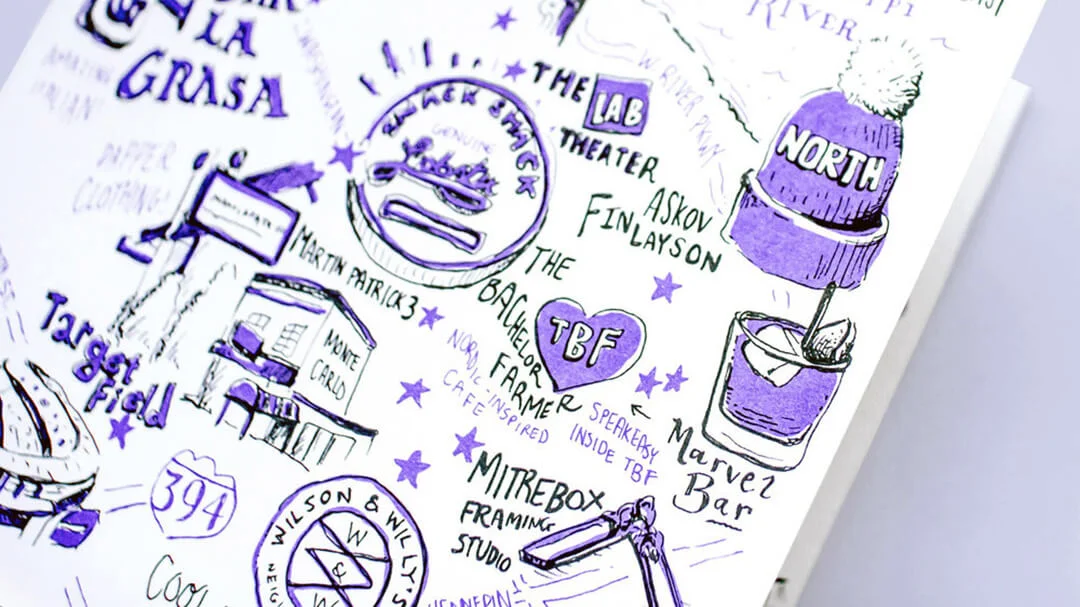 LA
GRASA
AMAZING
ITALIAN!
DAPPER
CLOTHING!
SMACK SHACK
GENUINE
Lobster
THE
LAB
THEATER
W RIVER PKWY
RIVER
NORTH
ASKOV
FINLAYSON
MARTIN PATRICK 3
THE
BACHELOR
FARMER
TBF
NORDIC-INSPIRED
CAFE
SPEAKEASY
INSIDE TBF
Marvel
Bar
Target
field
MONTE
CARLO
394
WILSON & WILLY'S
W
&
W
MITREBOX
FRAMING
STUDIO
HENNEPIN